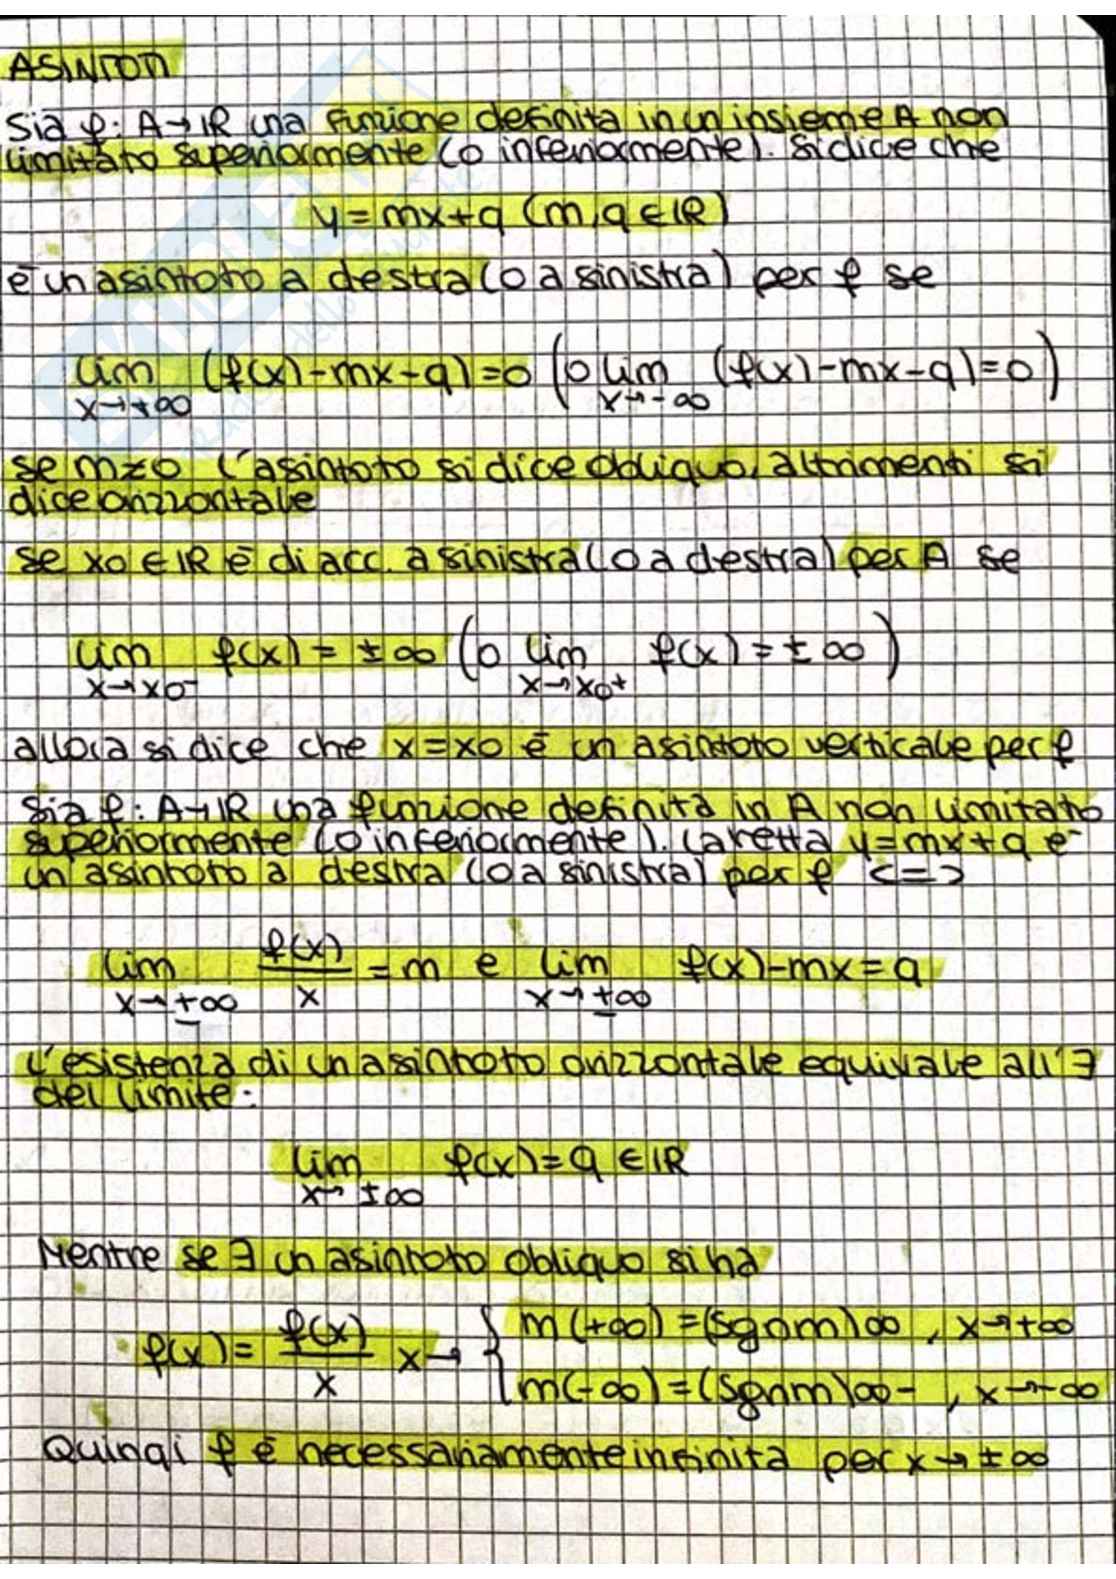 ASINTOTI
Sia f: A→IR una funzione definita in un insieme A non
limitato superiormente (o inferiormente). Si dice che
y=mx+q (m,q ∈ IR)
è un asintoto a destra (o a sinistra) per f se
lim (f(x)-mx-q)=0 (o lim (f(x)-mx-q)=0)
x→+∞ x→-∞
se m≠0 l'asintoto si dice obliquo, altrimenti si
dice orizzontale
se x0 ∈ IR è di acc. a sinistra (o a destra) per A se
lim f(x) = ±∞ (o lim f(x) = ±∞)
x→x0- x→x0+
allora si dice che x=x0 è un asintoto verticale per f
Sia f: A→IR una funzione definita in A non limitato
superiormente (o inferiormente). La retta y=mx+q è
un asintoto a destra (o a sinistra) per f <=>
lim f(x)/x = m e lim f(x)-mx=q
x→±∞ x→±∞
L'esistenza di un asintoto orizzontale equivale all'∃
del limite:
lim f(x)=q ∈ IR
x→±∞
Mentre se ∃ un asintoto obliquo si ha
f(x)= f(x)/x x→ { m(+∞) =(sgnm)∞ , x→+∞
m(-∞)=(sgnm)∞- , x→-∞
Quinqi f è necessariamente infinita per x→±∞